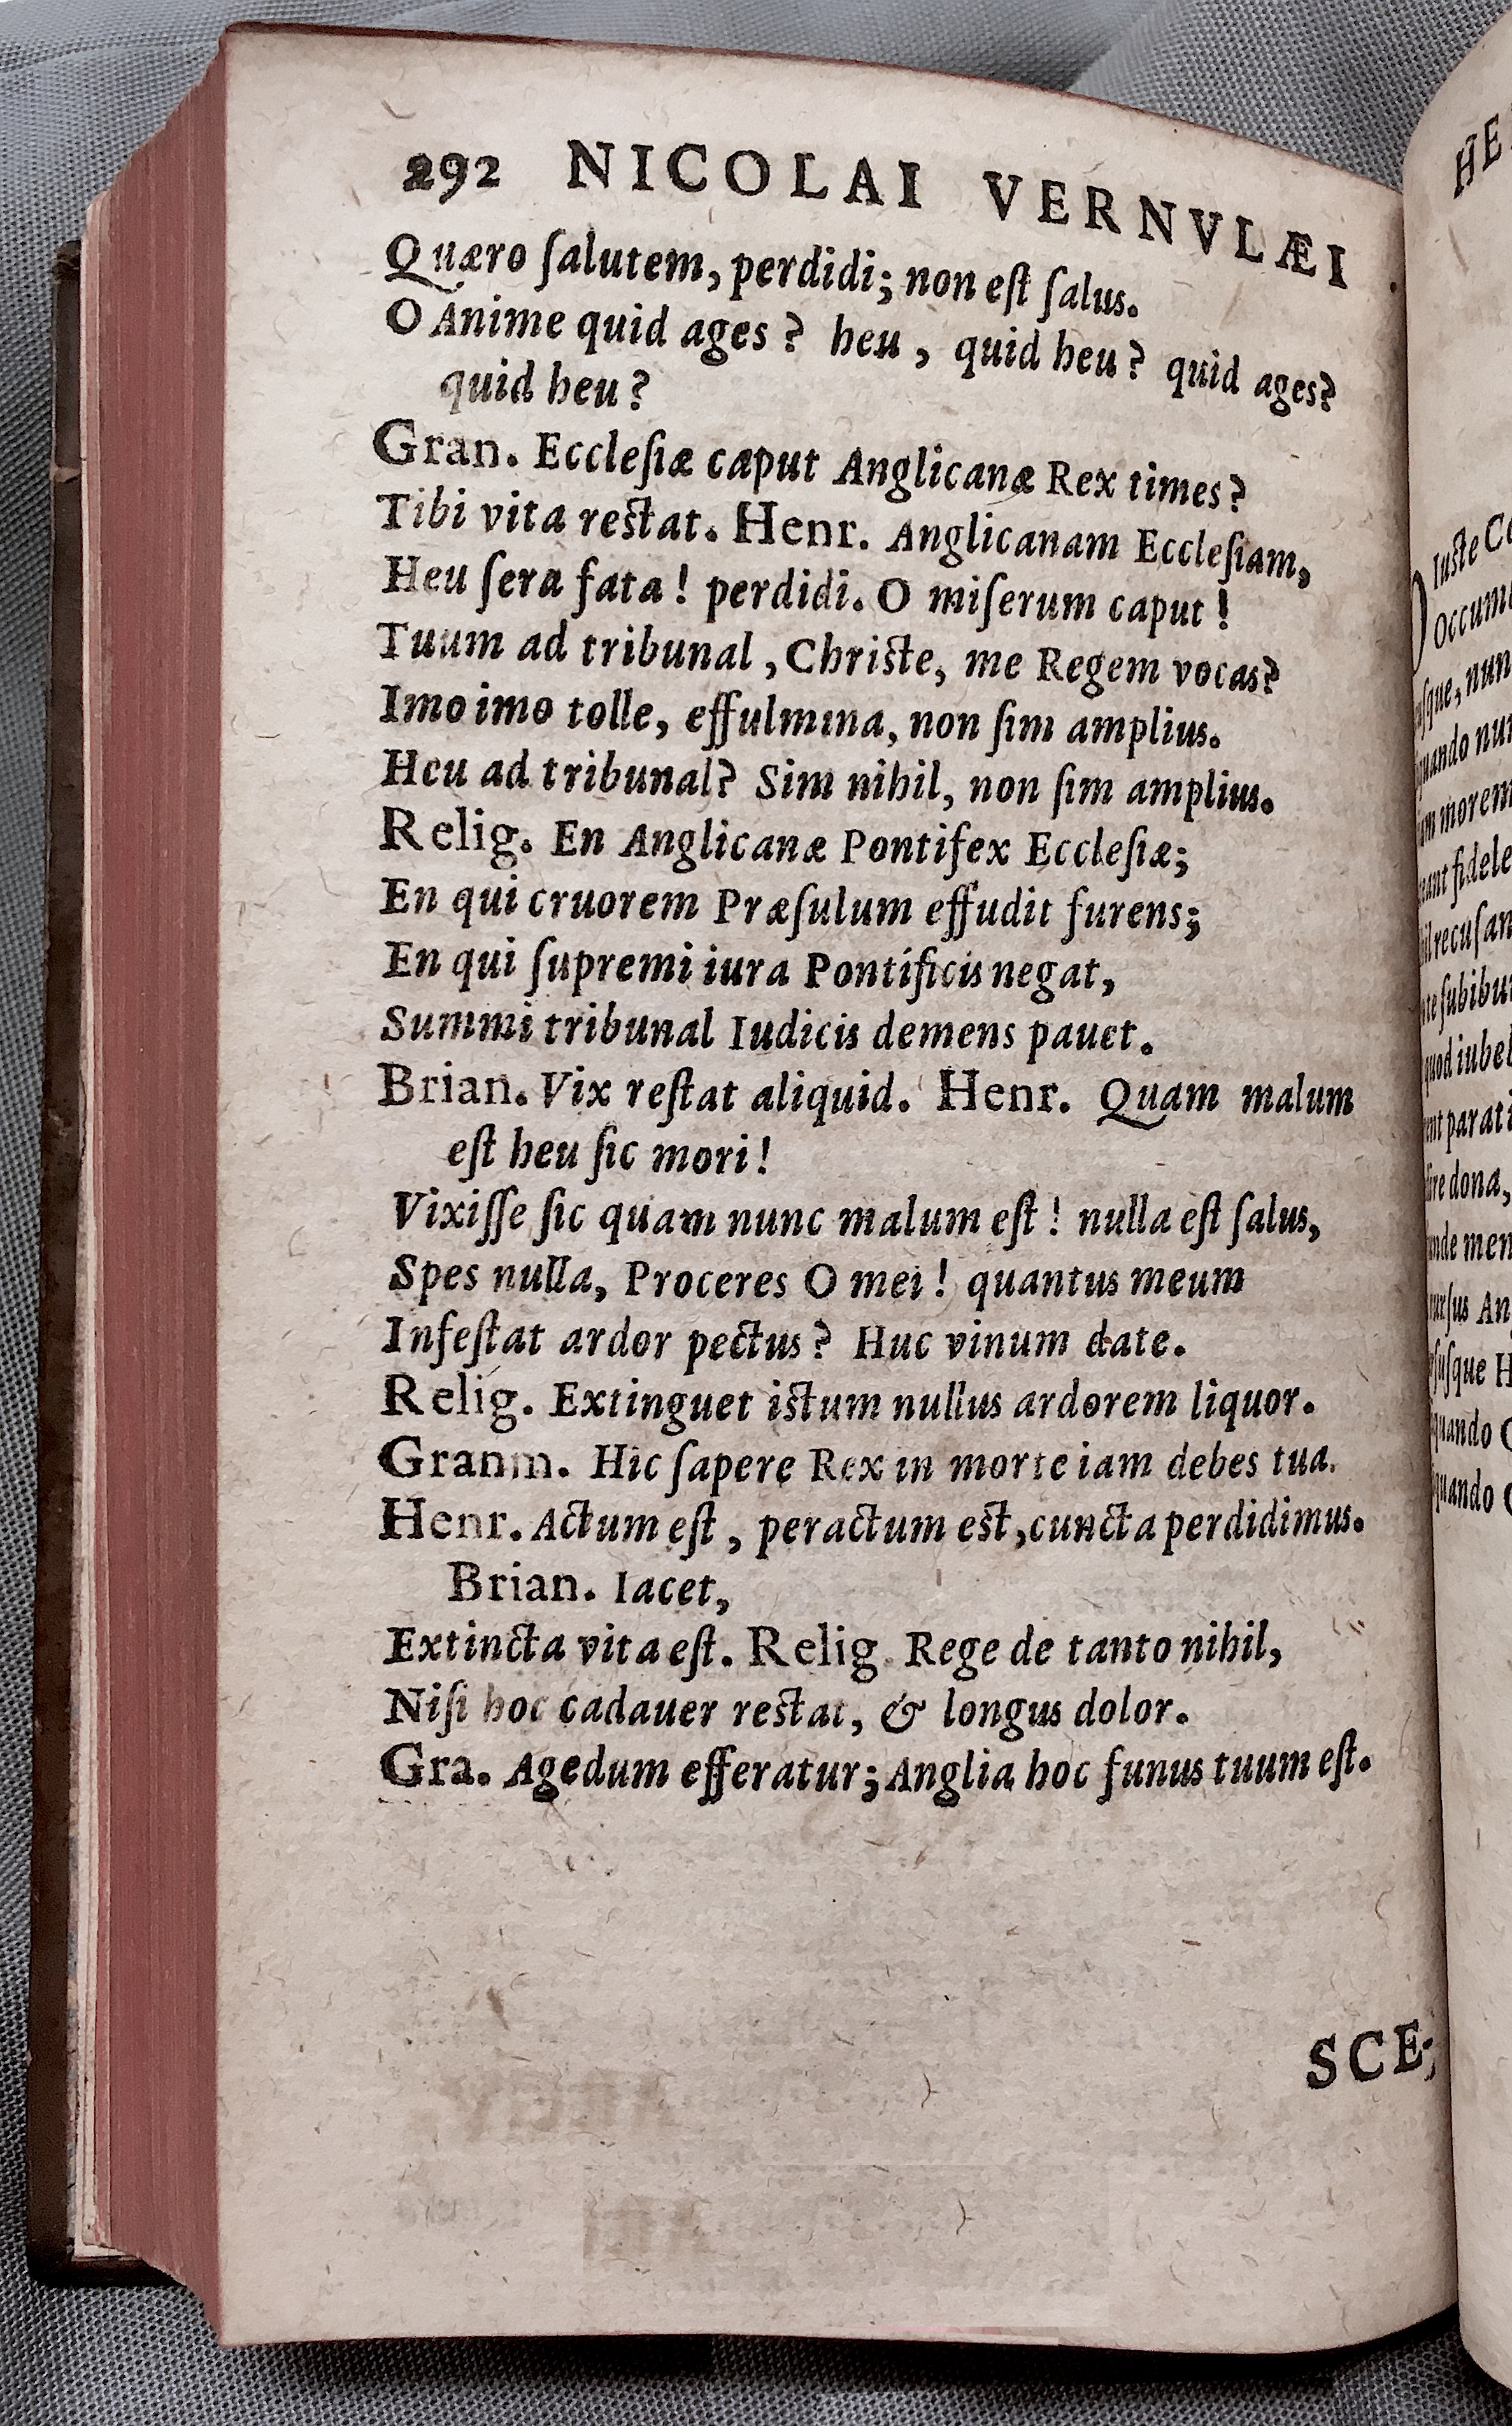 292 NICOLAI VERNVLÆI
Quæro ſalutem, perdidi; non eſt ſalus.
O Anime quid ages? heu, quid heu? quid ages?
quid heu?
Gran. Eccleſiæ caput Anglicanæ Rex times?
Tibi vita reſtat. Henr. Anglicanam Eccleſiam,
Heu ſera fata! perdidi. O miſerum caput!
Tuum ad tribunal, Chriſte, me Regem vocas?
Imo imo tolle, effulmina, non ſim amplius.
Heu ad tribunal? Sim nihil, non ſim amplius.
Relig. En Anglicanæ Pontifex Eccleſiæ;
En qui cruorem Præſulum effudit furens;
En qui ſupremi iura Pontificis negat,
Summi tribunal Iudicis demens pauet.
Brian. Vix reſtat aliquid. Henr. Quam malum
eſt heu ſic mori!
Vixiſſe ſic quam nunc malum eſt! nulla eſt ſalus,
Spes nulla, Proceres O mei! quantus meum
Infeſtat ardor pectus? Huc vinum date.
Relig. Extinguet iſtum nullus ardorem liquor.
Granm. Hic ſapere Rex in morte iam debes tua.
Henr. Actum eſt, peractum eſt, cuncta perdidimus.
Brian. Iacet,
Extincta vita eſt. Relig. Rege de tanto nihil,
Niſi hoc cadauer reſtat, & longus dolor.
Gra. Agedum efferatur; Anglia hoc funus tuum eſt.
SCE-
HE
Iuſte
quando
morem
fidele
ſubibu
quod iubet
parati
dona,
men
An
H
quando
quando